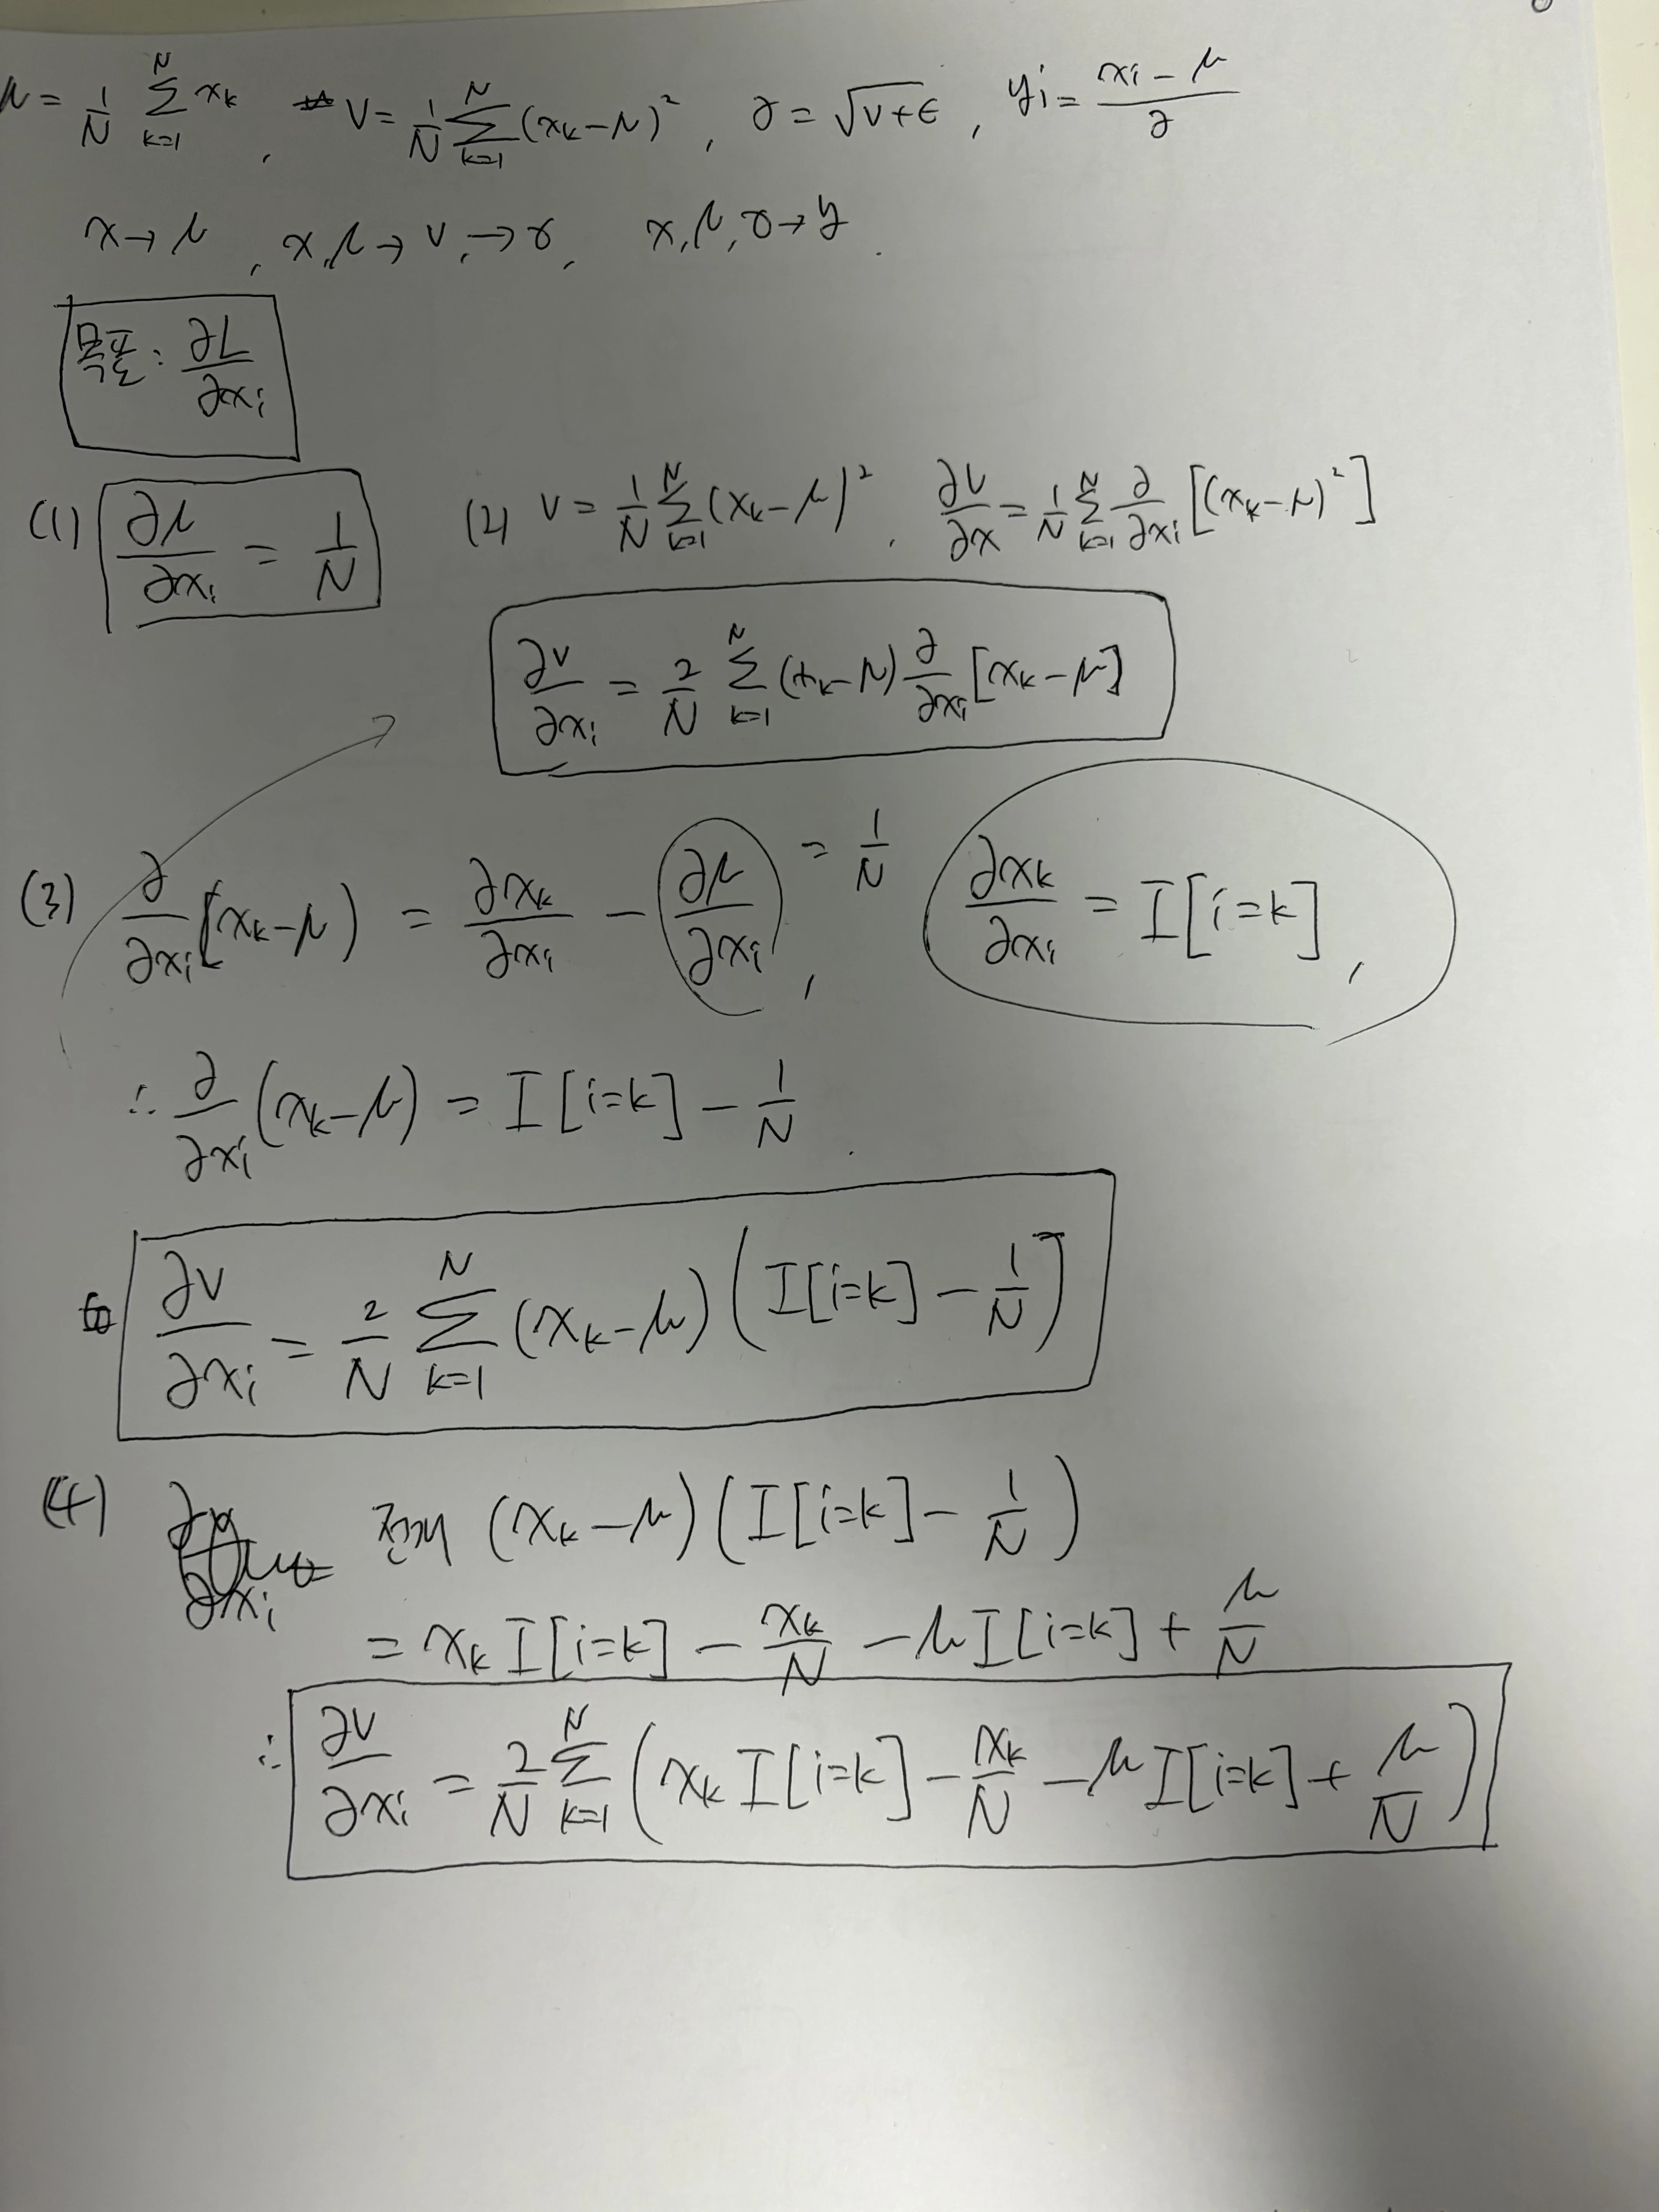 μ = 1/N Σ_{k=1}^{N} x_k , V = 1/N Σ_{k=1}^{N} (x_k - μ)² , σ = √(V+ε) , y_i = (x_i - μ)/σ
x → μ , x, μ → V, → σ, x, μ, σ → y .
목표: ∂L/∂x_i
(1) ∂μ/∂x_i = 1/N (2) V = 1/N Σ_{k=1}^{N} (x_k - μ)² , ∂V/∂x = 1/N Σ_{k=1}^{N} ∂/∂x_i [(x_k - μ)²]
∂V/∂x_i = 2/N Σ_{k=1}^{N} (x_k - μ) ∂/∂x_i [x_k - μ]
(3) ∂/∂x_i (x_k - μ) = ∂x_k/∂x_i - ∂μ/∂x_i = 1/N , ∂x_k/∂x_i = I[i=k] ,
∴ ∂/∂x_i (x_k - μ) = I[i=k] - 1/N .
∂V/∂x_i = 2/N Σ_{k=1}^{N} (x_k - μ) (I[i=k] - 1/N]
(4) 전개 (x_k - μ) (I[i=k] - 1/N)
= x_k I[i=k] - x_k/N - μ I[i=k] + μ/N
∴ ∂V/∂x_i = 2/N Σ_{k=1}^{N} (x_k I[i=k] - x_k/N - μ I[i=k] + μ/N)